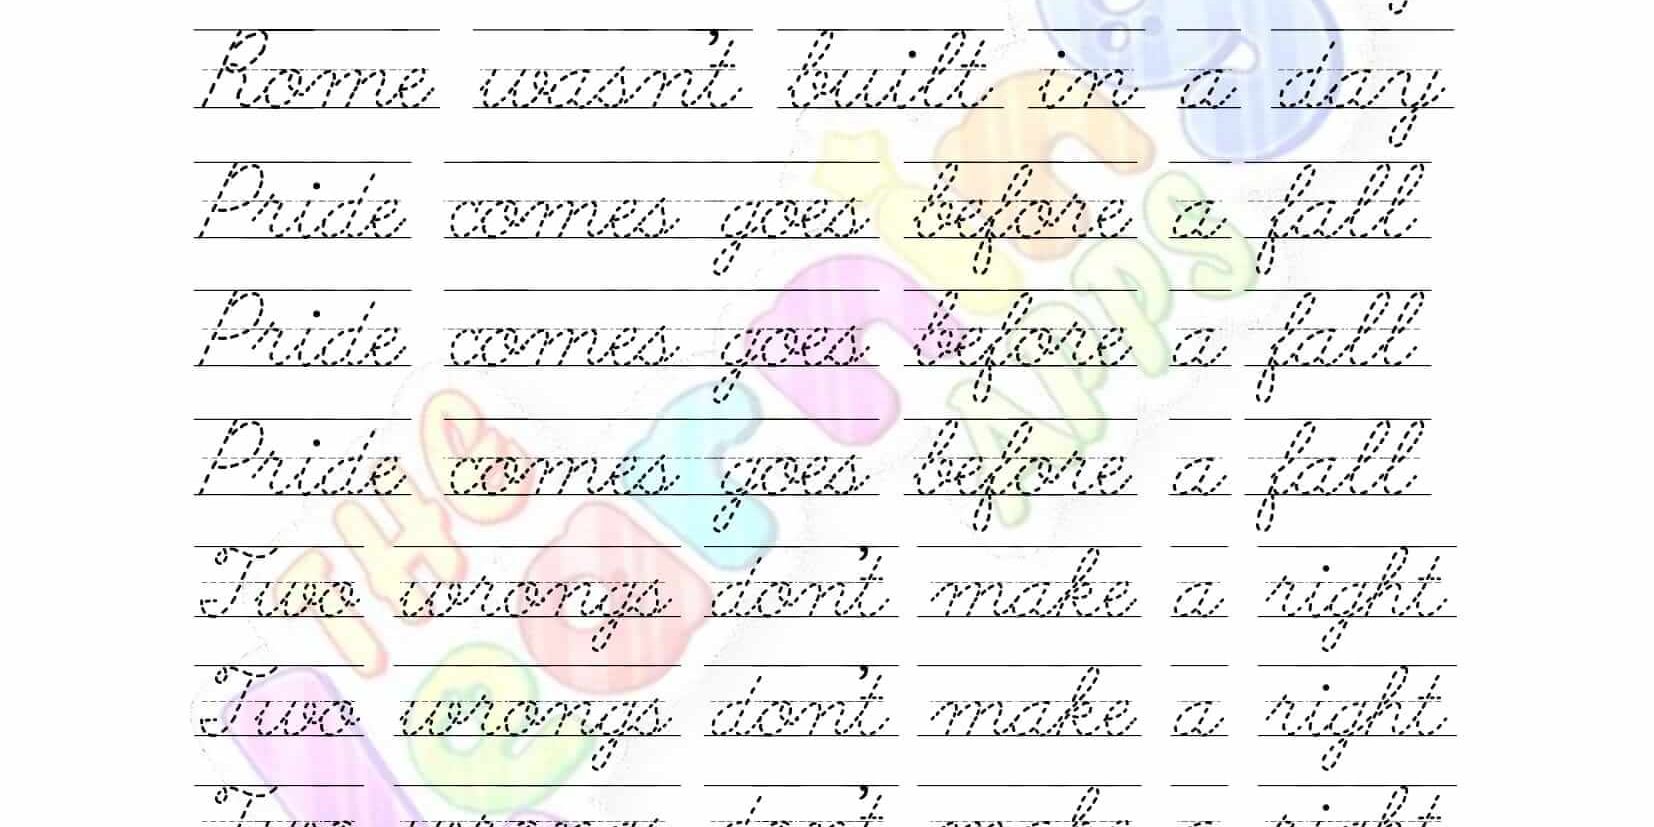 Rome wasn't built in a day
Pride comes goes before a fall
Pride comes goes before a fall
Pride comes goes before a fall
Two wrongs don't make a right
Two wrongs don't make a right
Two wrongs don't make a right
THE Learning APPS